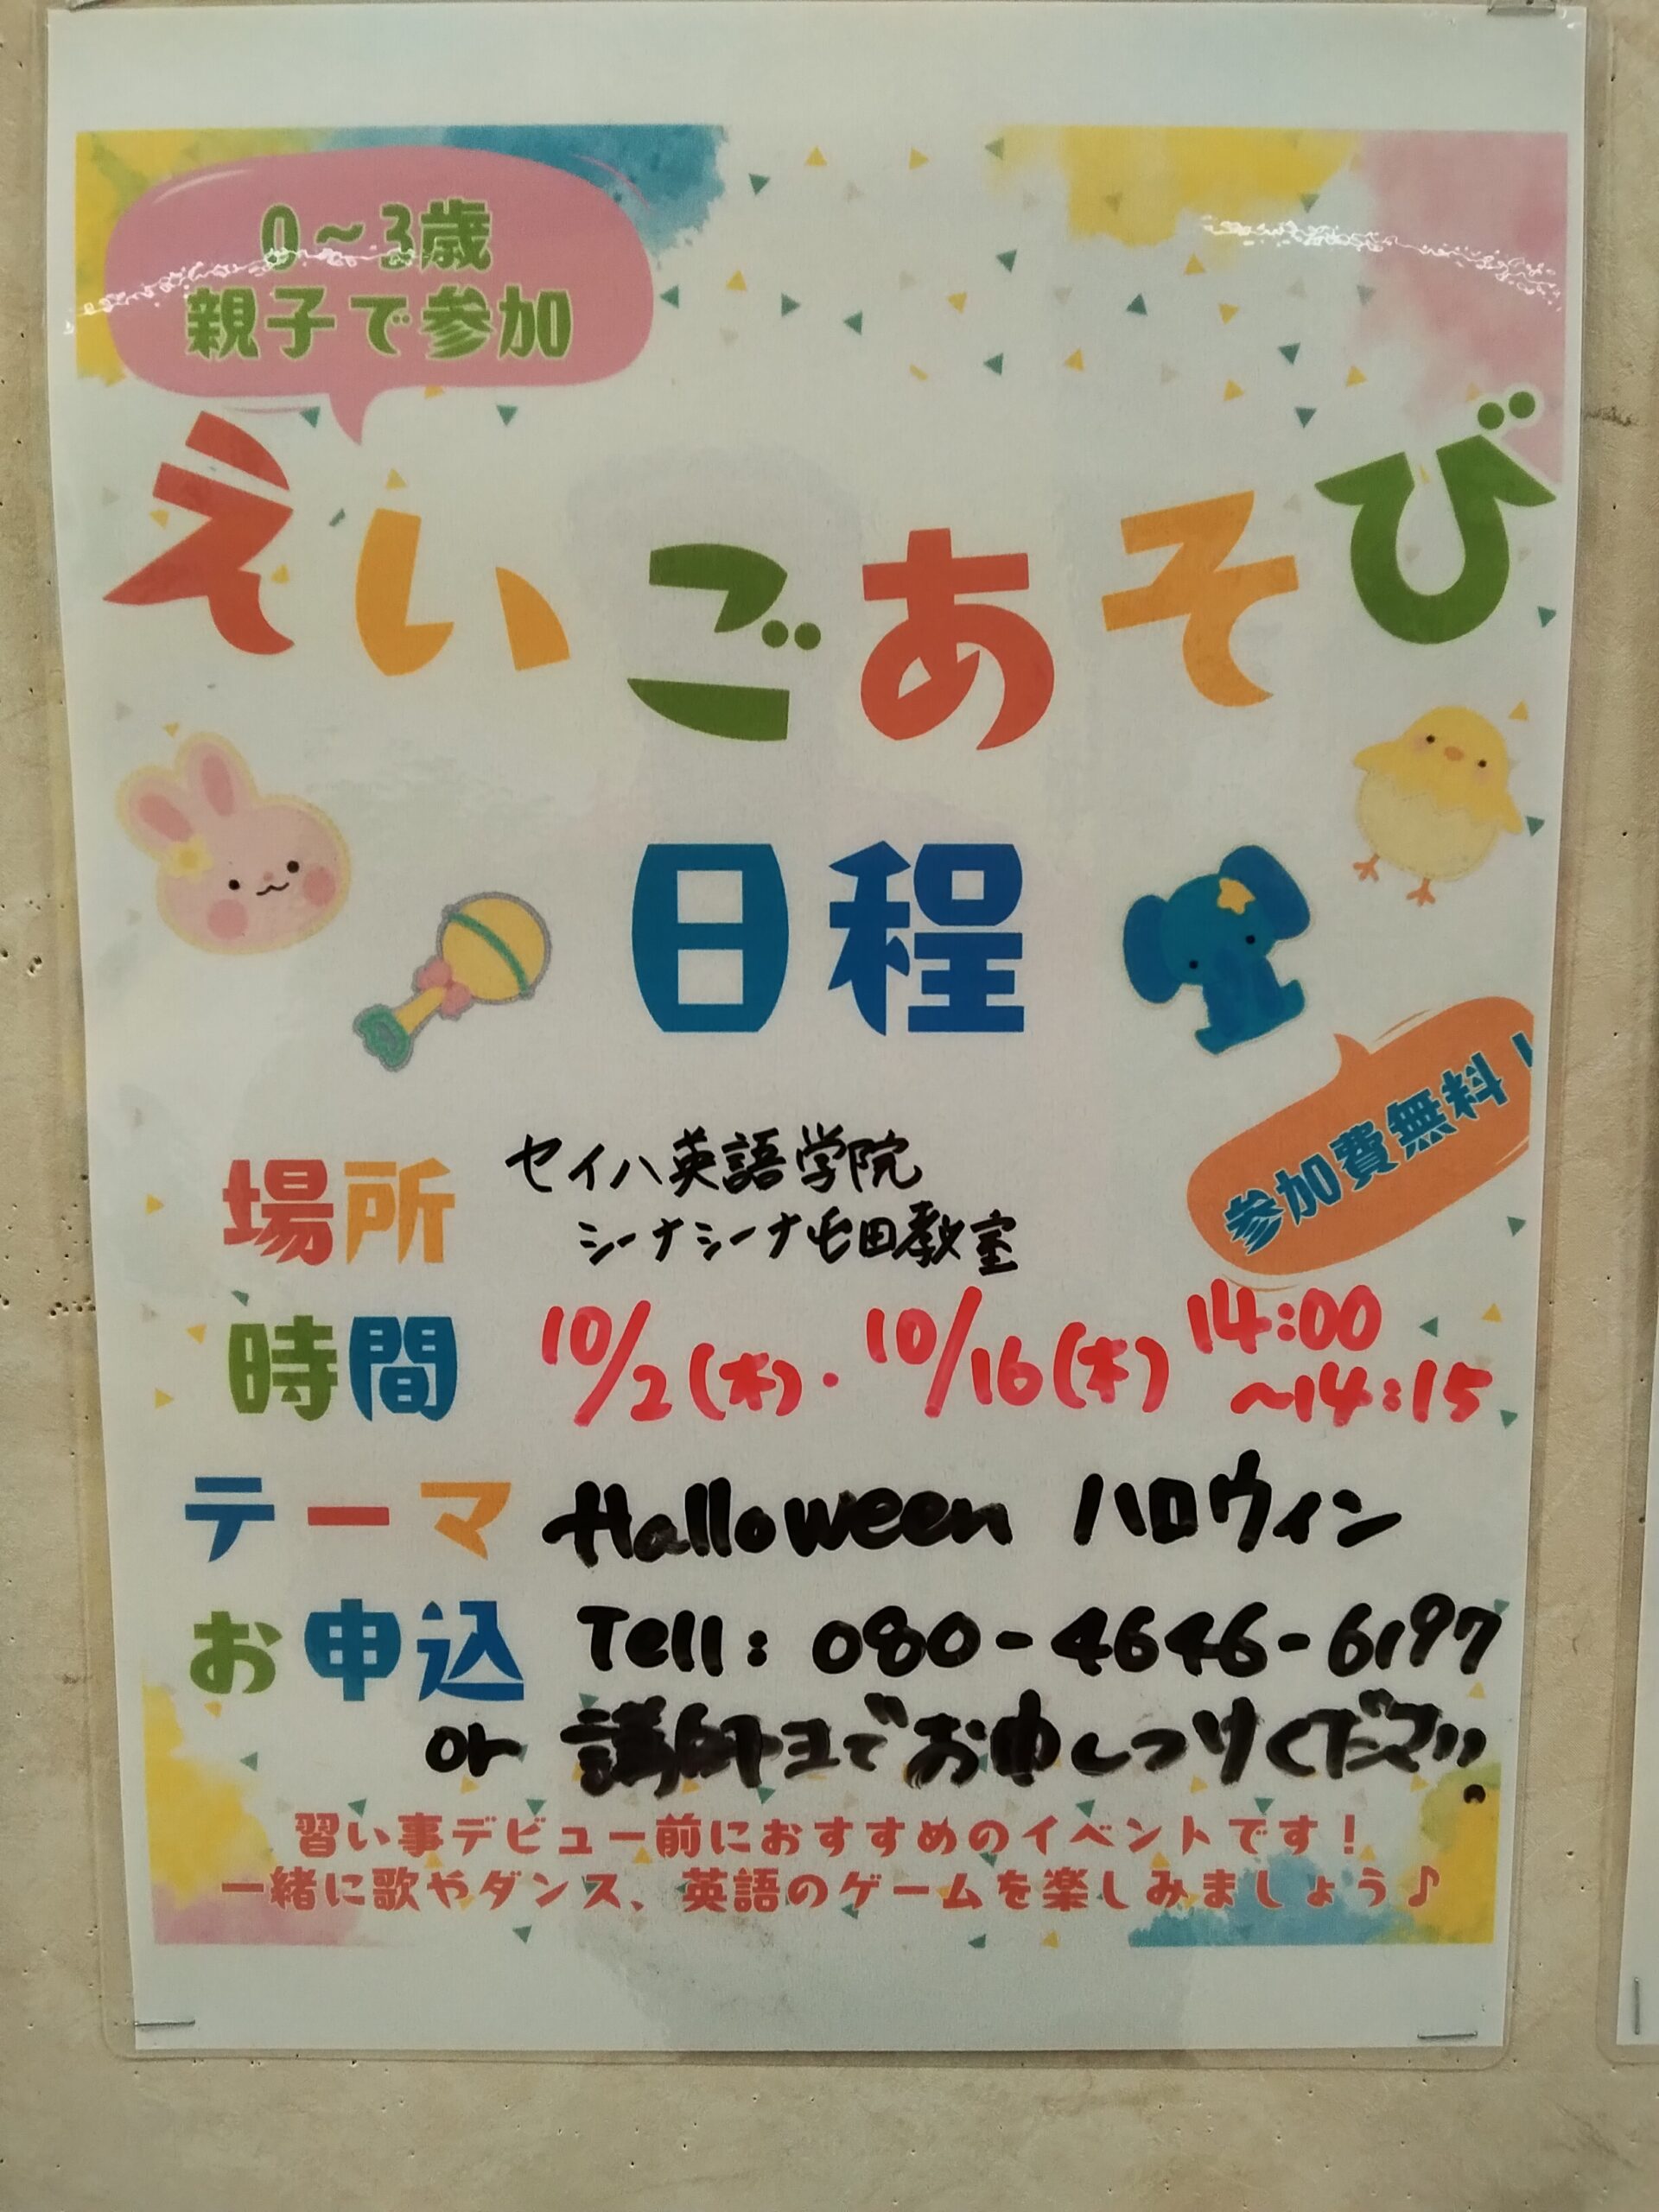 0～3歳
親子で参加
えいごあそび
日程
参加費無料！
場所 セイハ英語学院
シーナシーナ屯田教室
時間 10/2(木)・10/16(木) 14:00
～14:15
テーマ Halloween ハロウィン
お申込 Tell: 080-4646-6197
or 講師までお申しつけください。
習い事デビュー前におすすめのイベントです！
一緒に歌やダンス、英語のゲームを楽しみましょう♪